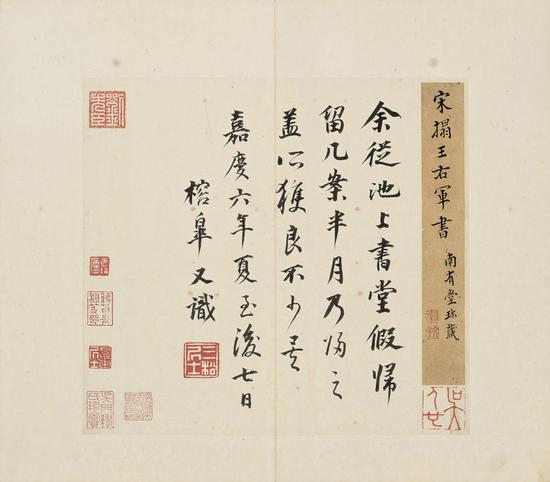 宋搨王右軍書
南有堂珍藏
余從池上書堂假歸
留几案半月乃歸之
盖所獲良不少矣
嘉慶六年夏至後七日
榕皋又識
三松居士